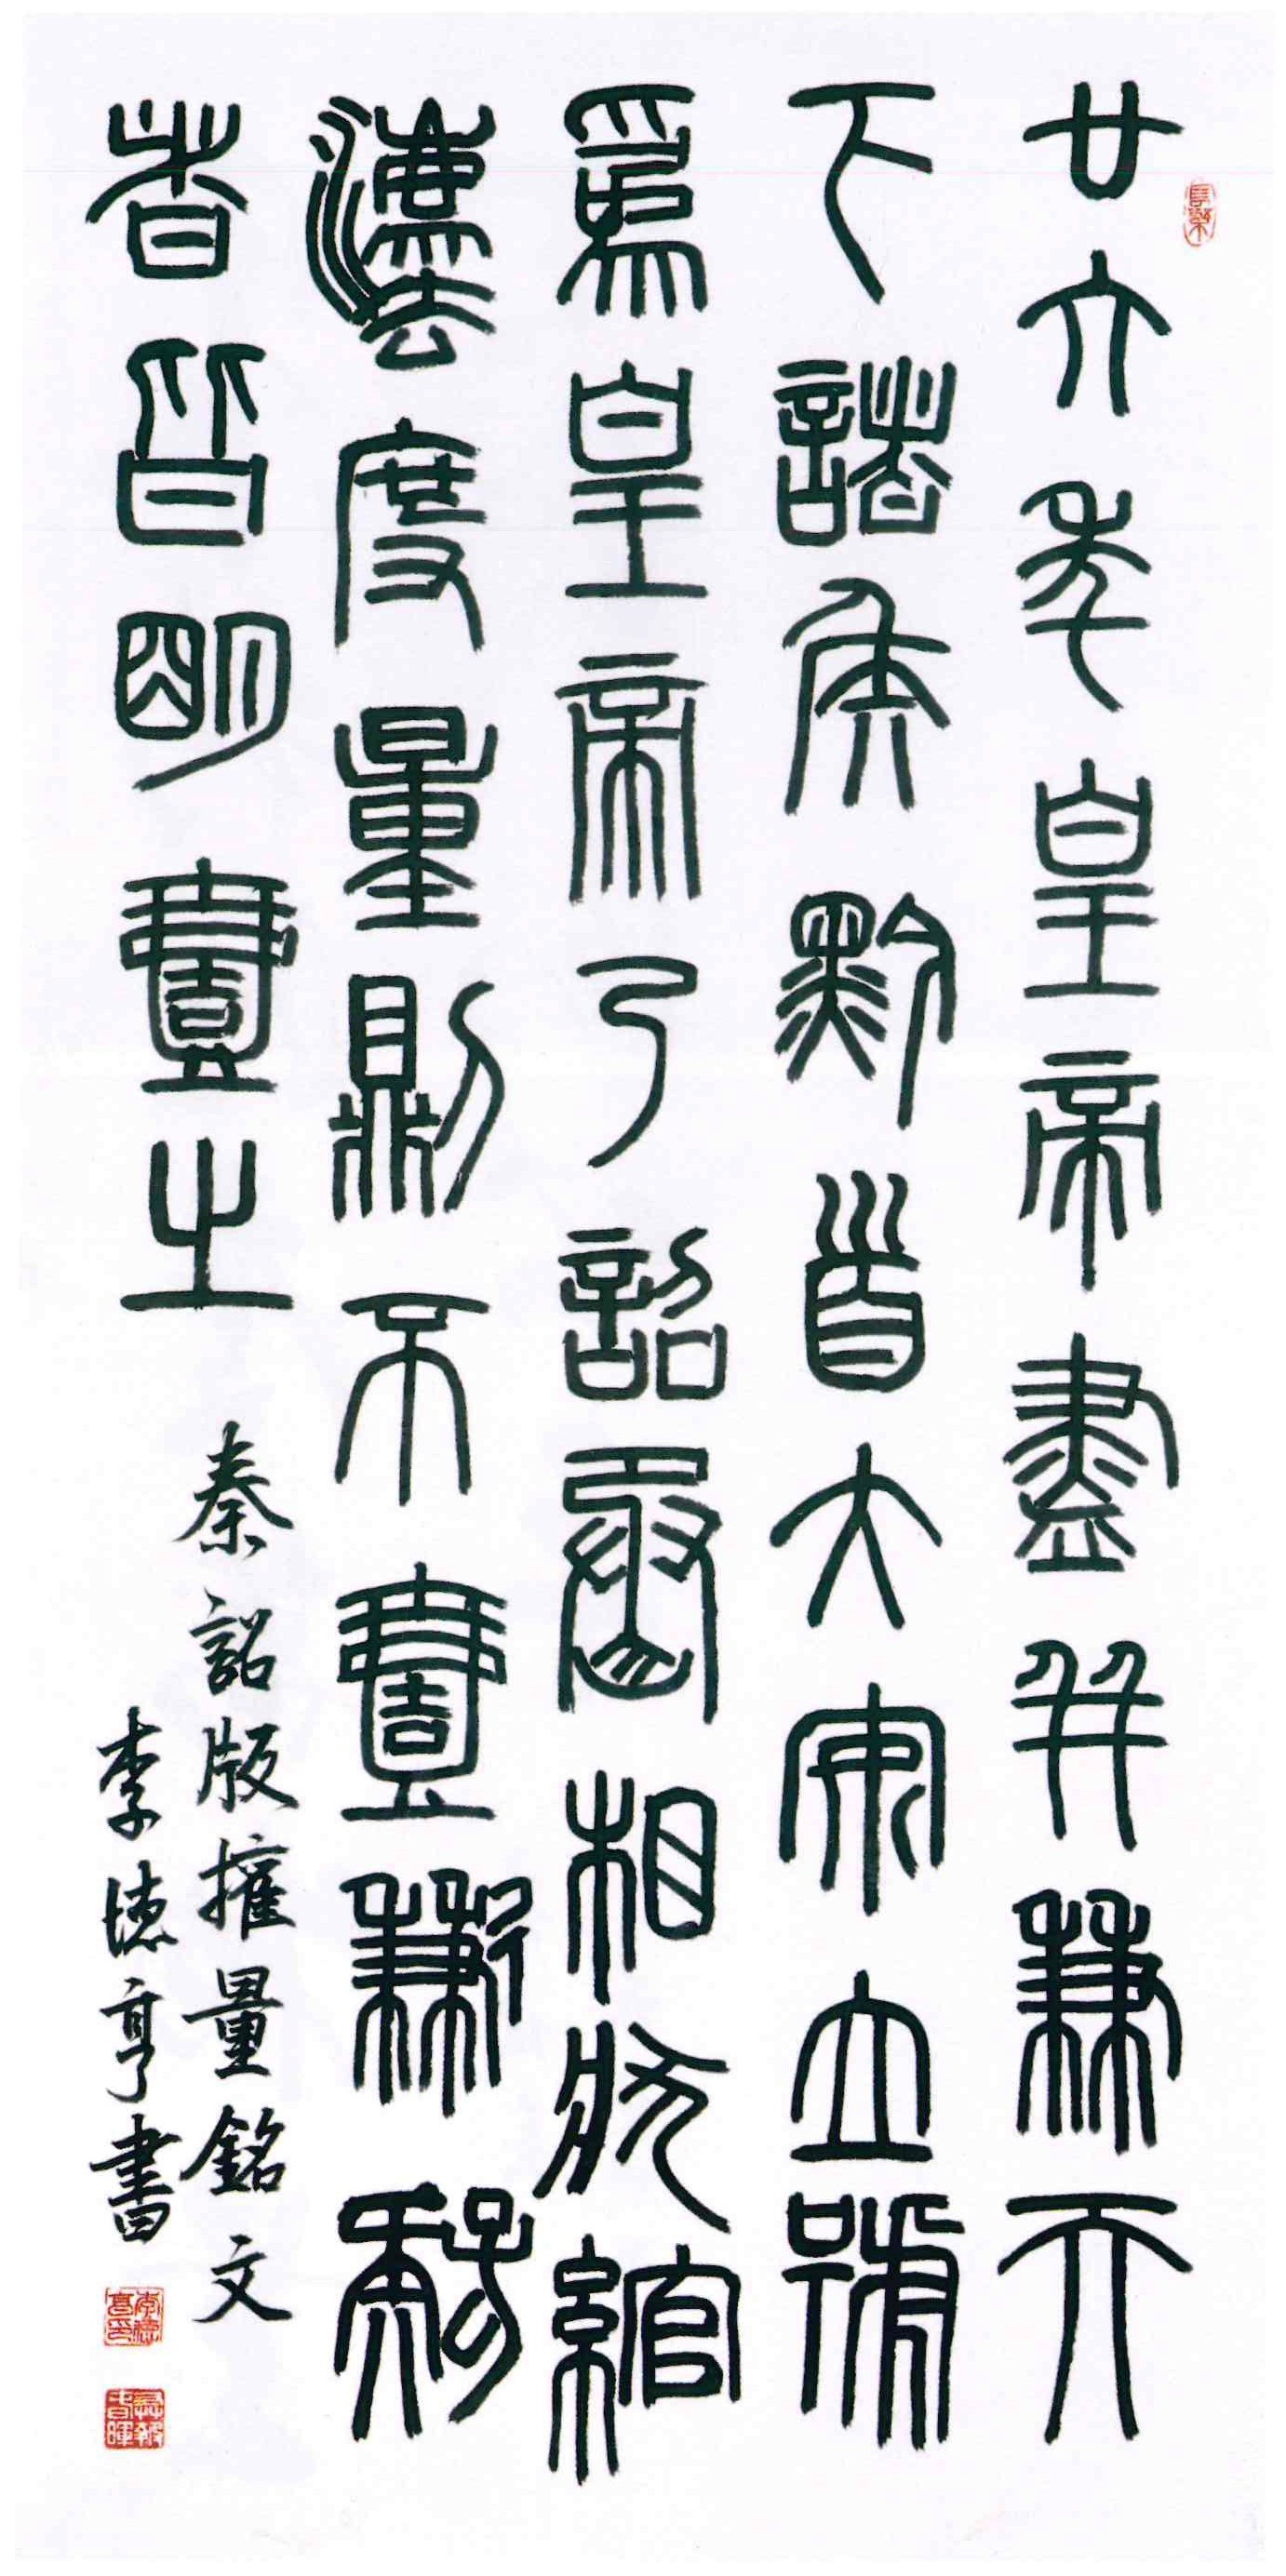 廿六年皇帝盡并兼天
下諸侯黔首大安立號
爲皇帝乃詔丞相狀綰
灋度量則不壹歉疑
者皆明壹之
秦詔版權量銘文
李德亨書
長樂
李德亨印